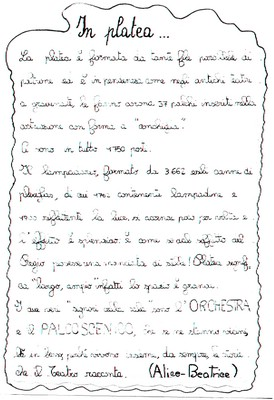 In platea...
La platea è formata da tante file parallele di
poltrone ed è in pendenza come negli antichi teatri
a gravinate le fanno corona 37 palchi inseriti nella
costruzione con forma a "conchiglia".
Ci sono in tutto 1750 posti.
Il lampadario, formato da 3.662 esili canne di
plexiglas, di cui contenenti lampadine e
riflettente la luce, si accende poco per volta e
l'effetto è splendido: è come se dal soffitto del
Regio scendesse una nuvola di stelle! Platea
da "largo, ampio" infatti lo spazio è grande.
I due veri "signori della sala" sono l'ORCHESTRA
e il PALCOSCENICO, che se ne stanno vicini,
perché devono insieme, da sempre, le storie
che il Teatro racconta. (Alice-Beatrice)